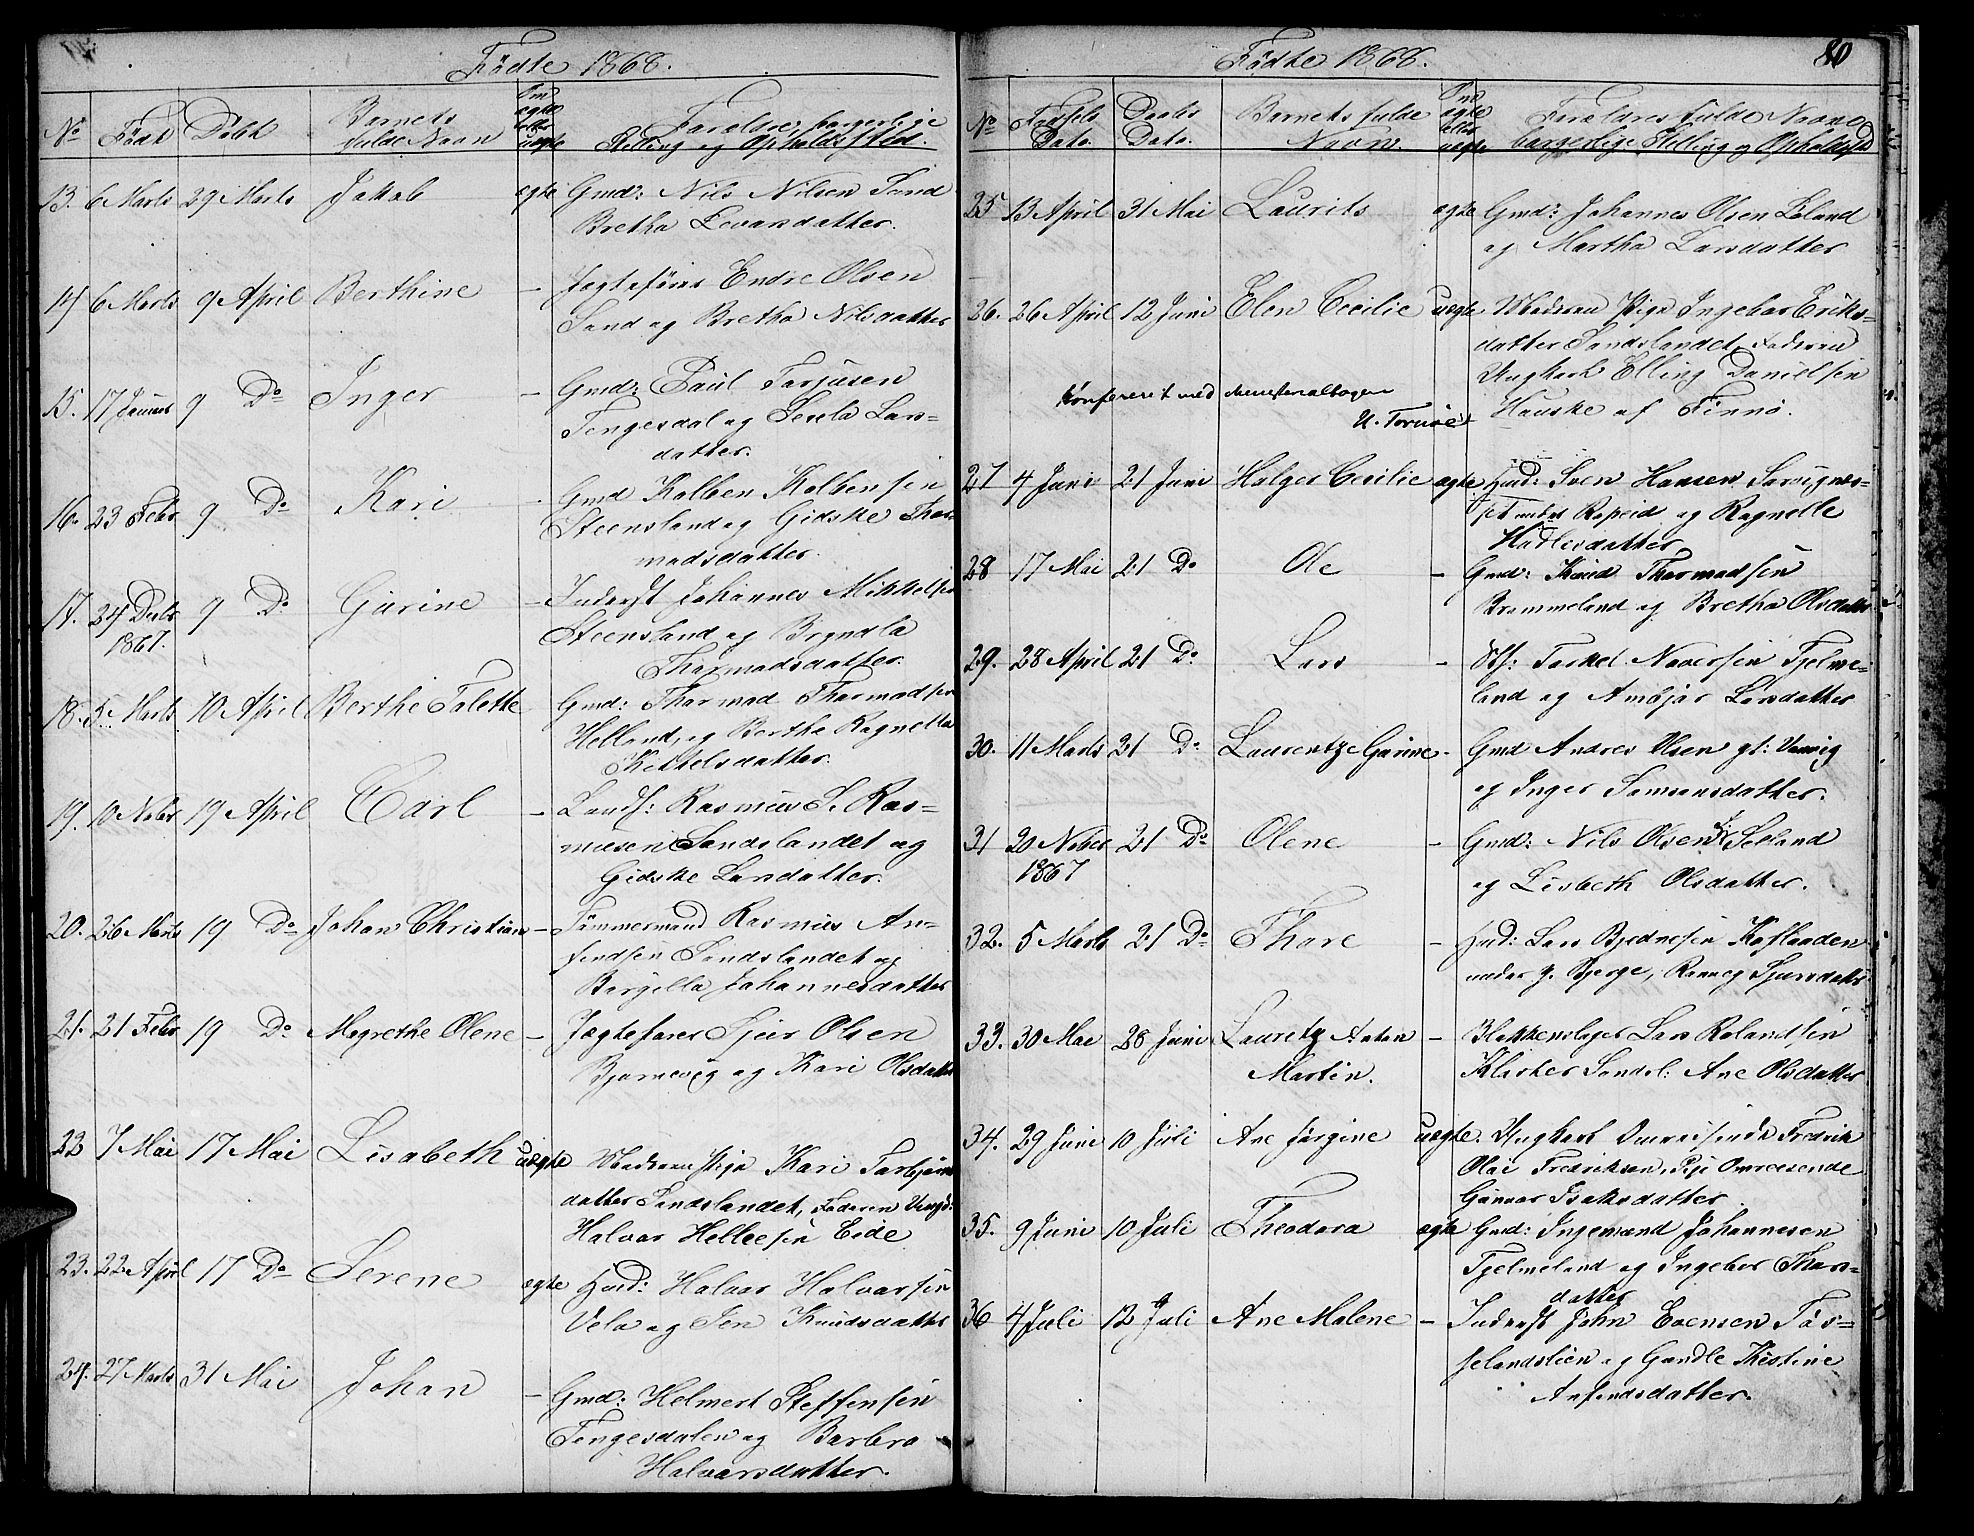 Fødte 1868.
No Født Døbt Barnets fulde Navn Om egte eller uegte Foreldre, borgerlige Stilling og Opholdssted.
13. 6 Marts 29 Marts Jakob egte Gmd: Nils Nilsen Sand
Bretha Levarsdatter.
14 6 Marts 9 April Berthine – Jagtefører Endre Olsen
Sand og Bretha Nilsdatter
15. 17 Januar 9 Do Inger – Gmd: Paul Tarjusen
Tengesdal og Sesela Lars=
datter.
16. 23 Febr 9 Do Kari – Gmd Kolben Kolbensen
Steensland og Gidske Thor
madsdatter.
17. 24 Decbr 9 Do Gurine – Inderst Johannes Mikkelsen
1867. Steensland og Bryndla
Thormadsdatter.
18. 5 Marts 10 April Berthe Talette Gmd: Thormad Thormadsen
Helland, og Bertha Ragnella
Kittelsdatter.
19. 10 Nobr 19 April Carl – Landh: Rasmus S. Ras=
musen Sandslandet og
Gidske Larsdatter.
20. 26 Marts 19 Do Johan Christian – Tømmermand Rasmus An=
findsen Sandslandet og
Bergella Johannesdatter
21. 21 Febr 19 Do Megrethe Olene – Jagtefører Sjur Olsen
Bjornevig og Kari Olsdatter
22 7 Mai 17 Mai Lisabeth uegte Moderen Pige Kari Torbjørns
datter Sandslandet, Faderen Ungk:
Halvar Helleesen Eide
23. 22 April 17 Do Serene egte Hmd: Halvar Halvarsen
Vela og Sen Knudsdatter
24. 27 Marts 31 Mai Johan – Gmd: Helmert Steffensen
Tengesdalen og Barbra
Halvarsdatter.
Fødte 1868.
80
No Fødsels Dato. Daabs Dato. Barnets fulde Navn. Om egte eller uegte Foreldres fulde Navne borgerlige Stilling og Opholdssted
25 13 April 31 Mai Laurits egte Gmd: Johannes Olsen Løland
og Martha Larsdatter
26. 26 April 12 Juni Elen Cecilie uegte Moderen Pige Ingebor Eriks=
datter Sandslandet, Faderen
Ungkarl Elling Danielsen
Hauske af Finnø.
Konfereret med Ministerialbogen
27 4 Juni 21 Juni Holger Cecilie egte Hmd: Sven Hansen
Ropeid og Ragnelle
Hadlesdatter
28 17 Mai 21 Do Ole – Gmd: Knud Thormadsen
Brommeland og Bretha Olsdatter
29. 28 April 21 Do Lars – Torkel Naversen Fjelme=
land og Ambjør Larsdatter
30. 11 Marts 21 Do Laurentze Gurine – Gmd Andres Olsen gt: Vanvig
og Inger Samsonsdatter.
31 20 Nober 21 Do Olene – Gmd: Nils Olsen Seland
1867 og Lisbeth Olsdatter.
32. 5 Marts 21 Do Thore – Hmd: Lars Bjednesen Kaflaaden
under g. Bjerge, Ranveg Sjursdatter
33. 30 Mai 28 Juni Lauretz Anton – Blokkenslager Lars Rolandsen
Martin. Klosker Sandsl: Ane Olsdatter
34. 29 Juni 10 Juli Ane Jørgine uegte. Ungkarl Omreisende Fredrik
Olai Fredriksen, Pige Omreesende
Gunnar Isaksdatter
35. 9 Juni 10 Juli Theodora egte Gmd: Ingemand Johannesen
Fjelmeland og Ingebor Thors=
datter
36 4 Juli 12 Juli Ane Malene – Inderst John Evensen Fos=
selandslien og Gundle Thestine
Anfindsdatter.